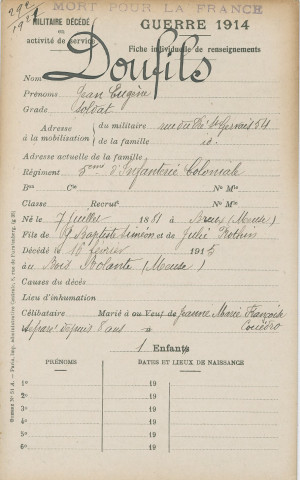 MORT POUR LA FRANCE
MILITAIRE DÉCÉDÉ
en
activité de service
GUERRE 1914
Fiche individuelle de renseignements
Nom Doufils
Prénoms Jean Eugène
Grade Soldat
Adresse à la mobilisation du militaire rue du Pré St Gervais 54
de la famille id.
Adresse actuelle de la famille
Régiment 5eme d'Infanterie Coloniale
Bon Cie No Mle
Classe Recrut No Mle
Né le 7 juillet 1881 à (Meuse)
Fils de J. Baptiste Siméon et de Julie
Décédé le 16 février 1915
au Bois Bolante (Meuse)
Causes du décès
Lieu d'inhumation
Célibataire Marié à ou Veuf de Jeanne Marie Françoise
séparés depuis 8 ans
1 Enfants
PRÉNOMS DATES ET LIEUX DE NAISSANCE
1o 19
2o 19
3o 19
4o 19
5o 19
6o 19